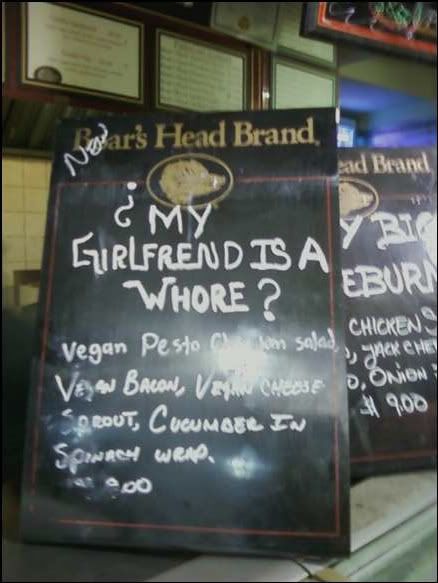 New
Boar's Head Brand
¿ MY
GIRLFREND IS A
WHORE?
Vegan Pesto salad,
VEGAN BACON, VEGAN CHEESE
SPROUT, CUCUMBER IN
SPINACH WRAP.
9.00
ead Brand
Y BIG
EBURN
CHICKEN
JACK CHE
ONION
$1 9.00